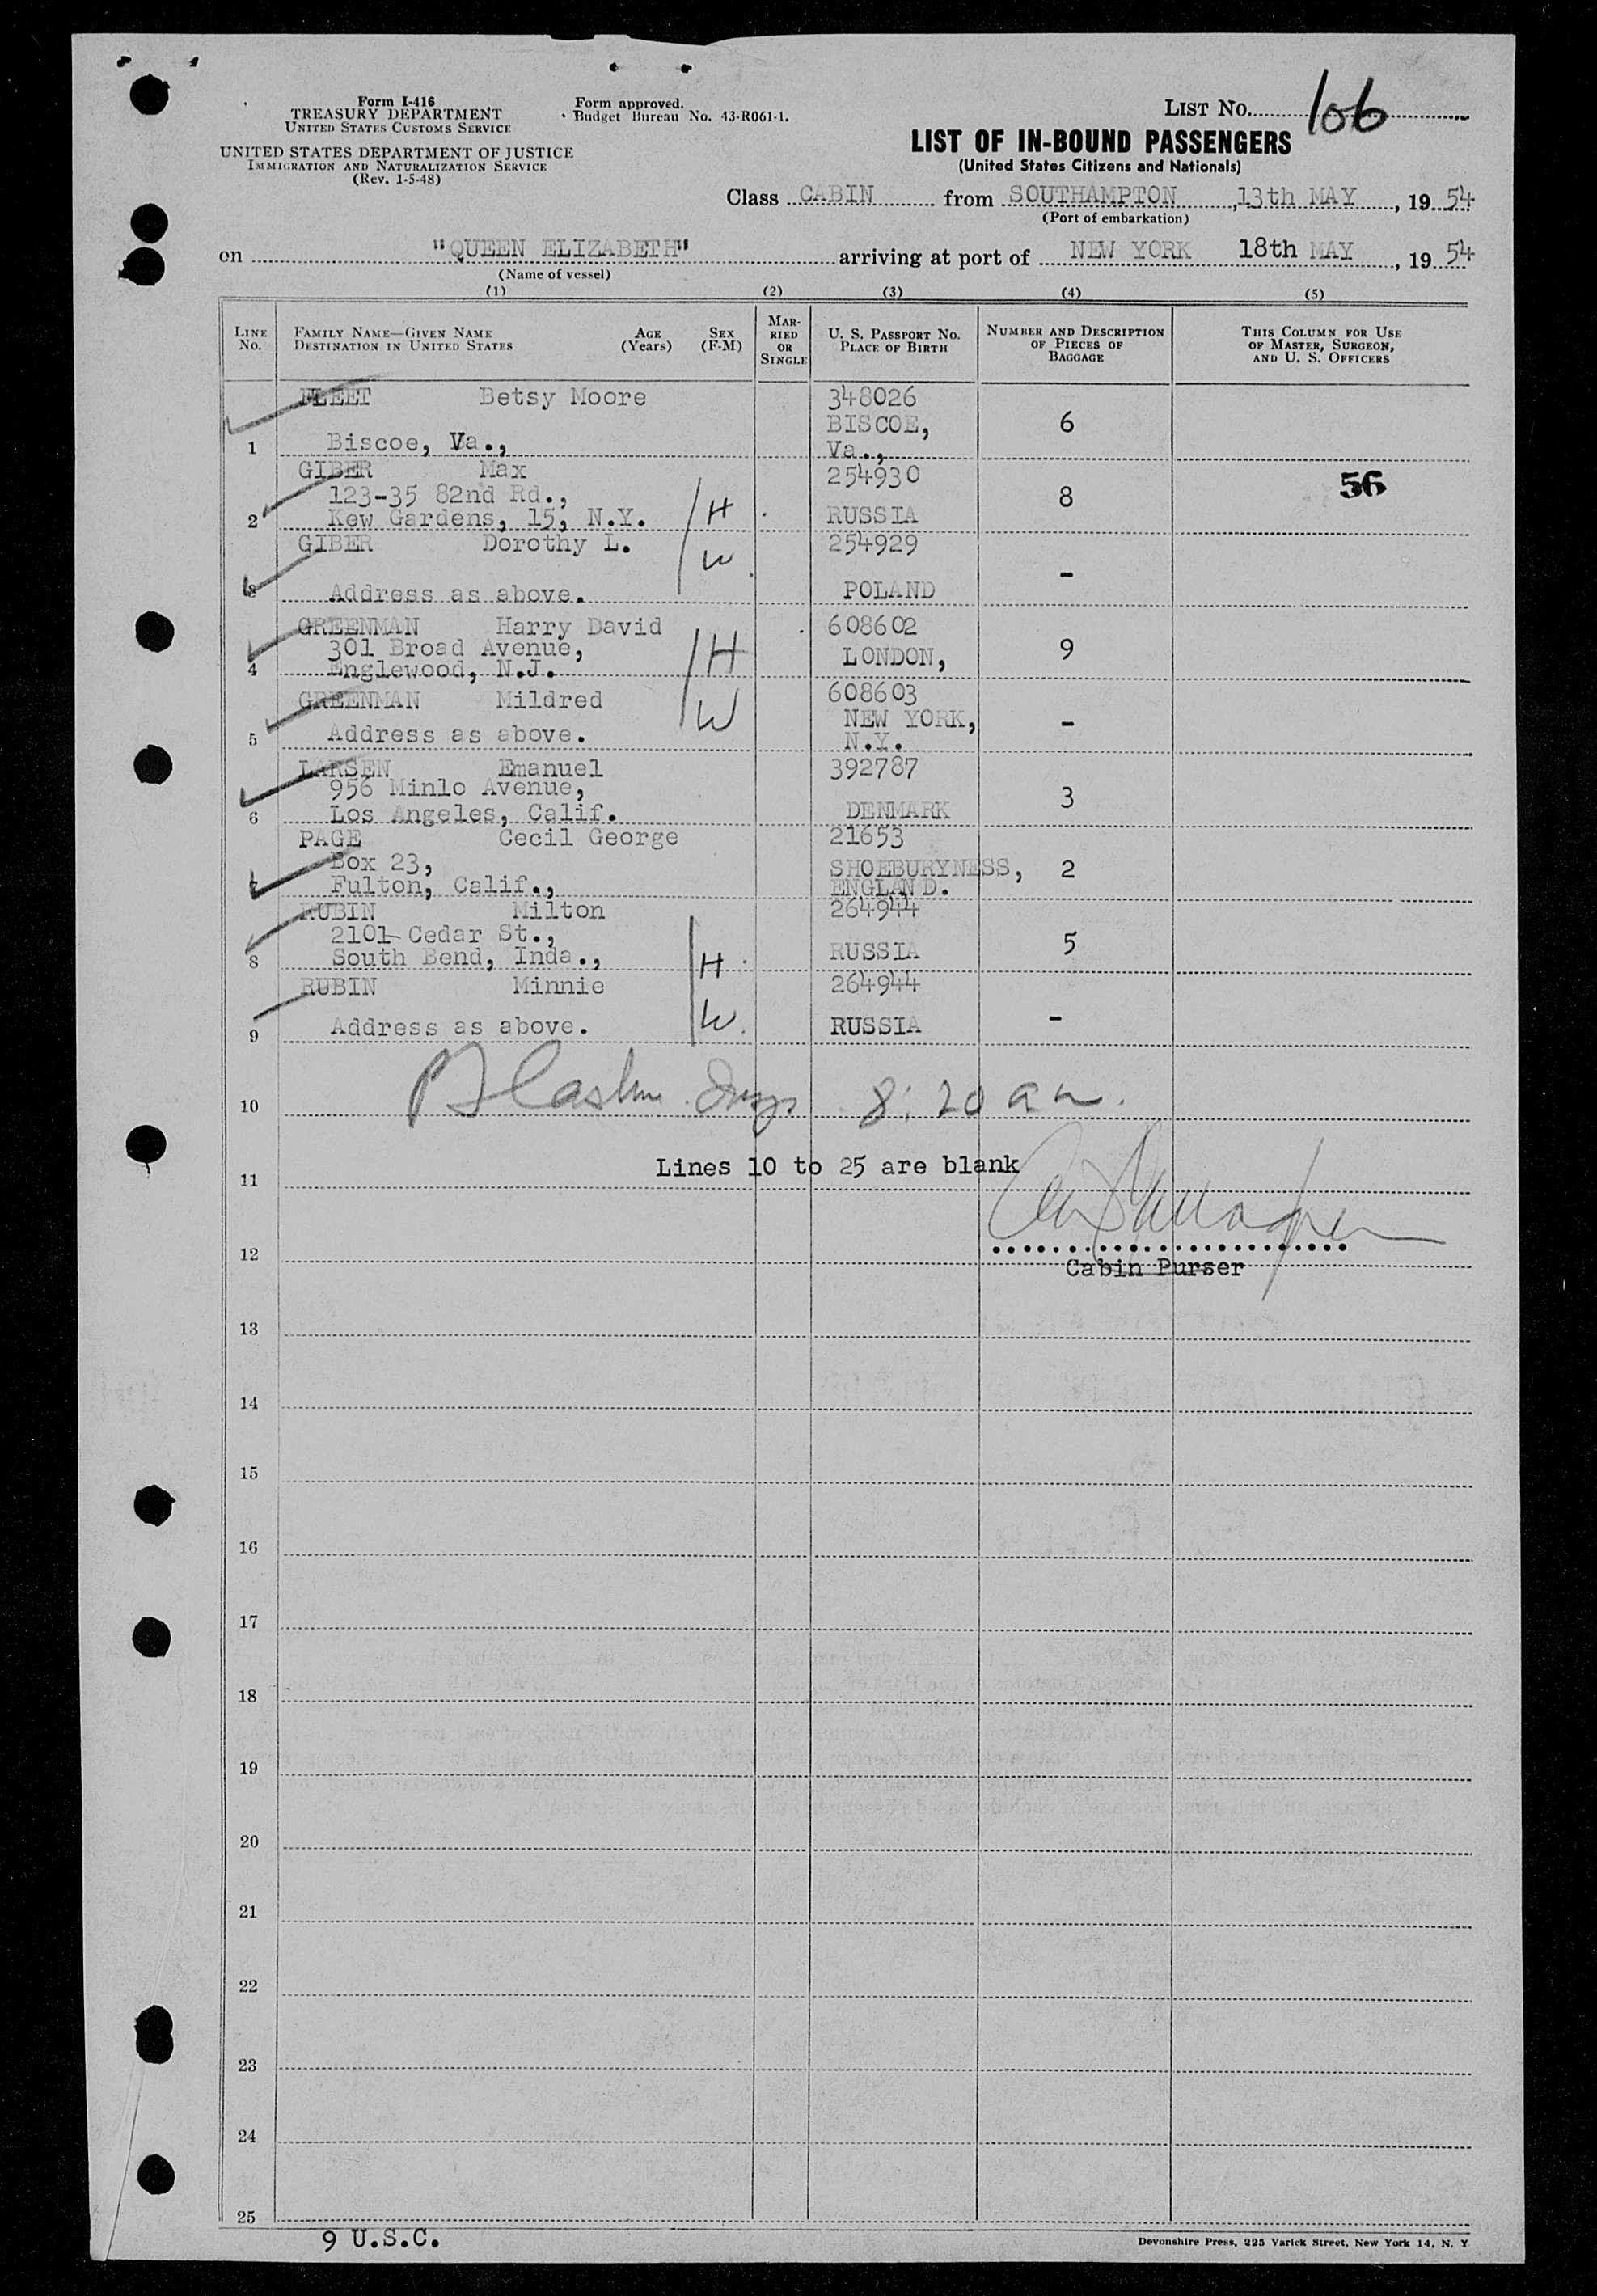 Form I-416
TREASURY DEPARTMENT
UNITED STATES CUSTOMS SERVICE
UNITED STATES DEPARTMENT OF JUSTICE
IMMIGRATION AND NATURALIZATION SERVICE
(Rev. 1-5-48)
Form approved.
Budget Bureau No. 43-R061-1.
LIST NO. 106
LIST OF IN-BOUND PASSENGERS
(United States Citizens and Nationals)
Class CABIN from SOUTHAMPTON, 13th MAY, 1954
(Port of embarkation)
on "QUEEN ELIZABETH" arriving at port of NEW YORK 18th MAY, 1954
(Name of vessel)
(1) (2) (3) (4) (5)
LINE NO. FAMILY NAME—GIVEN NAME DESTINATION IN UNITED STATES AGE (Years) SEX (F-M) MARRIED OR SINGLE U. S. PASSPORT NO. PLACE OF BIRTH NUMBER AND DESCRIPTION OF PIECES OF BAGGAGE THIS COLUMN FOR USE OF MASTER, SURGEON, AND U. S. OFFICERS
FLEET Betsy Moore 348026
BISCOE, 6
1 Biscoe, Va., Va.,
GIBER Max 254930 56
123-35 82nd Rd., 8
2 Kew Gardens, 15, N.Y. H RUSSIA
GIBER Dorothy L. 254929
W -
3 Address as above. POLAND
GREENMAN Harry David 608602
301 Broad Avenue, H LONDON, 9
4 Englewood, N.J.
GREENMAN Mildred 608603
W NEW YORK, -
5 Address as above. N.Y.
LARSEN Emanuel 392787
956 Minlo Avenue, 3
6 Los Angeles, Calif. DENMARK
PAGE Cecil George 21653
Box 23, SHOEBURYNESS, 2
7 Fulton, Calif., ENGLAND.
RUBIN Milton 264944
2101 Cedar St., 5
8 South Bend, Inda., H RUSSIA
RUBIN Minnie 264944
9 Address as above. W. RUSSIA -
10 8:20 am.
Lines 10 to 25 are blank
11
12
Cabin Purser
13
14
15
16
17
18
19
20
21
22
23
24
25
9 U.S.C.
Devonshire Press, 225 Varick Street, New York 14, N. Y